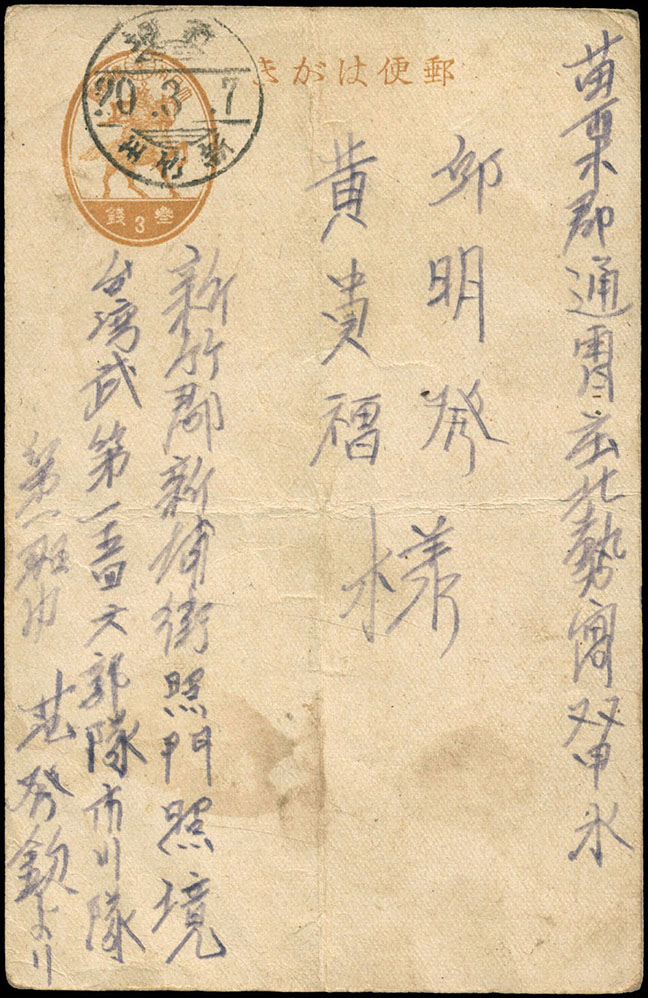 郵便はがき
苗栗郡通霄庄北勢窩双甲水
邱明發
黄貴福
様
新竹郡新埔街照門照境
台湾武第一五四六部隊市川隊
第一班内 范發欽より
20.3.7
参3錢